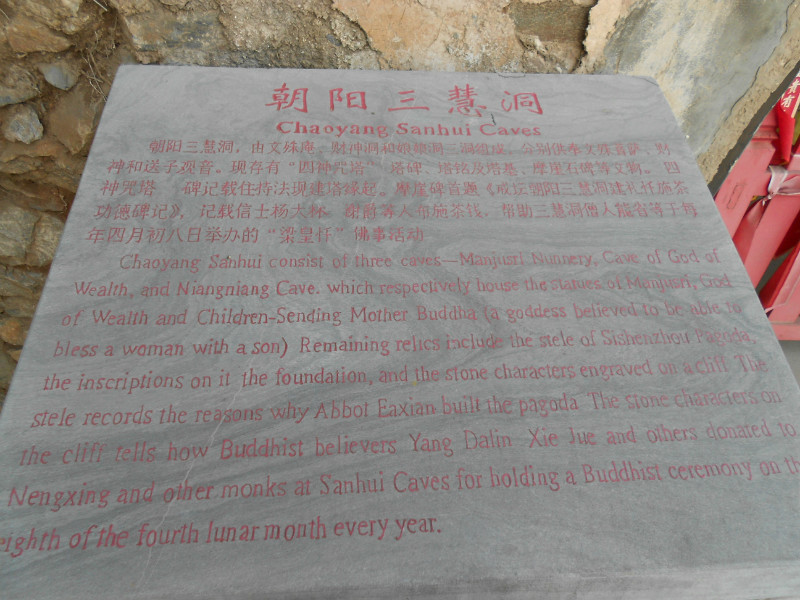 朝阳三慧洞
Chaoyang Sanhui Caves
朝阳三慧洞，由文殊庵、财神洞和娘娘洞三洞组成，分别供奉文殊菩萨、财
神和送子观音。现存有“四神咒塔”塔碑、塔铭及塔基，摩崖石碑等文物。四
神咒塔 碑记载住持法现建塔缘起。摩崖碑首题《成坛朝阳三慧洞建礼忏施茶
功德碑记》，记载信士杨大林、谢 等人布施茶钱，帮助三慧洞僧人能 等于每
年四月初八日举办的“梁皇忏”佛事活动
Chaoyang Sanhui consist of three caves—Manjusri Nunnery, Cave of God of
Wealth, and Niangniang Cave. which respectively house the statues of Monjusri, God
of Wealth and Children-Sending Mother Buddha (a goddess believed to be able to
bless a woman with a son) Remaining relics include the stele of Sishenzhou Pagoda,
the inscriptions on it the foundation, and the stone characters engraved on a cliff The
stele records the reasons why Abbot Eaxian built the pagoda The stone characters on
the clift tells how Buddhist believers Yang Dalin Xie Jue and others donated to
Nengxing and other monks at Sanhui Caves for holding a Buddhist ceremony on th
eighth of the fourth lunar month every year.